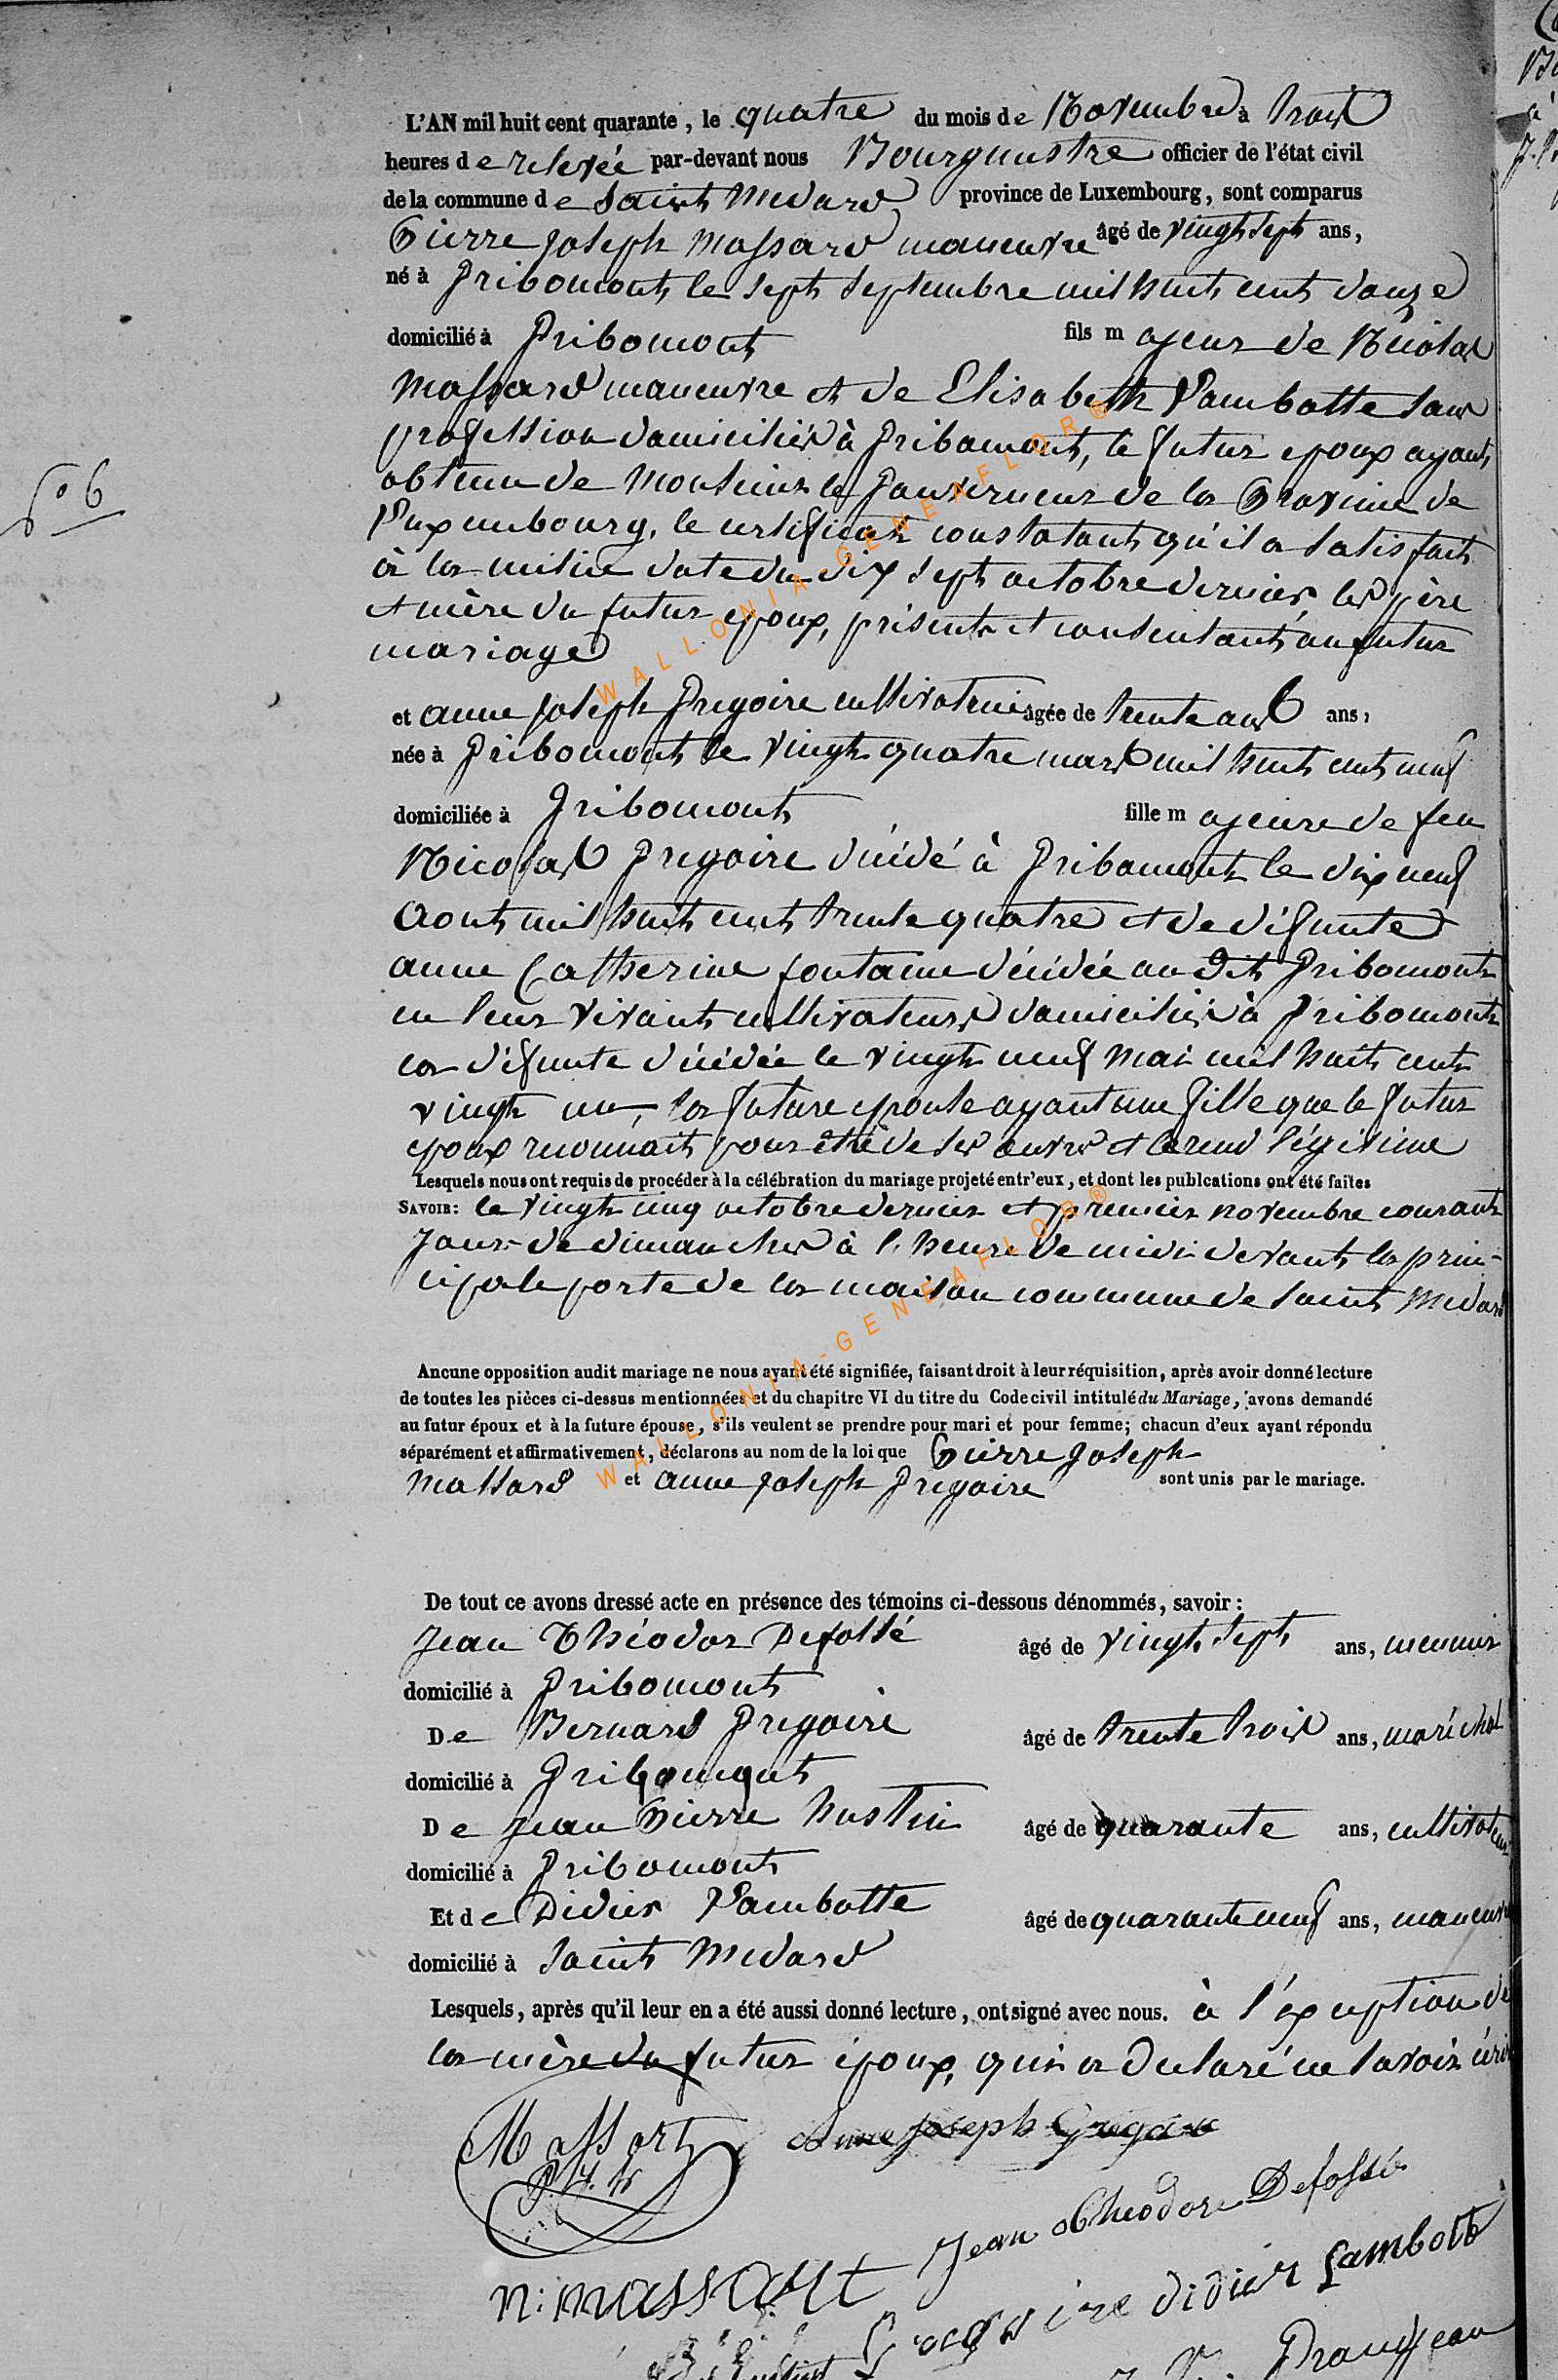 L'AN mil huit cent quarante, le quatre du mois de Novembre à trois
heures de relevée par-devant nous Bourgmestre officier de l'état civil
de la commune de Saint Medard province de Luxembourg, sont comparus
Pierre Joseph Massard manœuvre âgé de vingt sept ans,
né à Gribomont le sept septembre mil huit cent douze
domicilié à Gribomont fils majeur de Nicolas
Massard manœuvre et de Elisabeth Lambotte sans
profession domiciliés à Gribomont, le futur epoux ayant
obtenu de Monsieur le Gouverneur de la Province de
Luxembourg, le certificat constatant qu'il a satisfait
à la milice date du dix sept octobre dernier, les père
et mère du futur epoux, présents et consentant au futur
mariage
et anne Joseph Gregoire cultivatrice âgée de trente ans ans,
née à Gribomont le vingt quatre mars mil huit cent neuf
domiciliée à Gribomont fille majeure de feu
Nicolas Gregoire décédé à Gribomont le dix neuf
Aout mil huit cent trente quatre et de défunte
anne Catherine fontaine décédée au dit Gribomont
en leur vivant cultivateurs domiciliés à Gribomont
la défunte décédée le vingt neuf Mai mil huit cent
vingt un, la future epouse ayant une fille que le futur
epoux reconnait pour être de ses œuvres et la rend légitime
Lesquels nous ont requis de procéder à la célébration du mariage projeté entr'eux, et dont les publcations ont été faites
SAVOIR: le vingt cinq octobre dernier et premier novembre courant
Jours de dimanches à l'heure de midi devant la prin-
cipale porte de la maison commune de Saint Medard
Ancune opposition audit mariage ne nous ayant été signifiée, faisant droit à leur réquisition, après avoir donné lecture
de toutes les pièces ci-dessus mentionnées et du chapitre VI du titre du Code civil intitulé du Mariage, avons demandé
au futur époux et à la future épouse, s'ils veulent se prendre pour mari et pour femme; chacun d'eux ayant répondu
séparément et affirmativement, déclarons au nom de la loi que Pierre Joseph
Massard et anne Joseph Gregoire sont unis par le mariage.
De tout ce avons dressé acte en présence des témoins ci-dessous dénommés, savoir:
Jean Théodor Defossé âgé de vingt sept ans, meunier
domicilié à Gribomont
De Bernard Gregoire âgé de trente trois ans, maréchal
domicilié à Gribomont
De Jean Pierre hustin âgé de quarante ans, cultivateur
domicilié à Gribomont
Et de Didier Lambotte âgé de quarante neuf ans, manœuvre
domicilié à Saint Medard
Lesquels, après qu'il leur en a été aussi donné lecture, ont signé avec nous. à l'exception de
la mère du futur époux, qui a declaré ne savoir écrire
Massart Anne Joseph Gregoire
Jean Theodore Defossé
N: Massart Gregoire Didier Lambotte
Grandjean
6
WALLONIA-GENEAFLOR®
WALLONIA-GENEAFLOR®